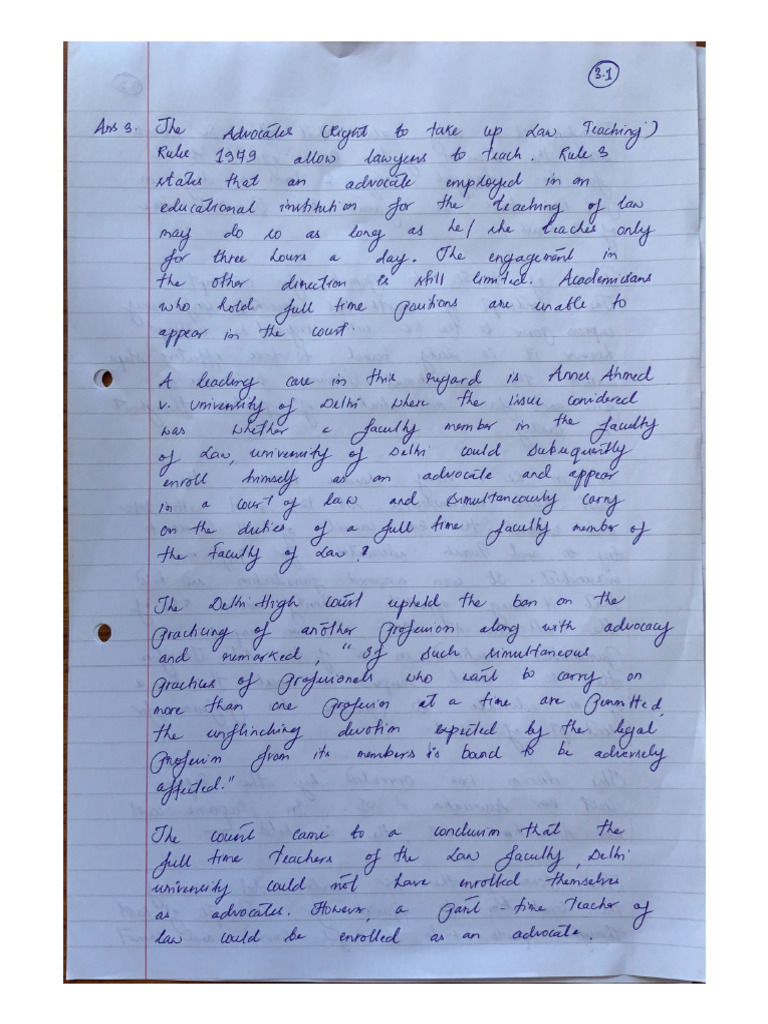 3.1
Ans 3. The Advocates (Right to take up Law Teaching)
Rules 1979 allow lawyers to teach. Rule 3
states that an advocate employed in an
educational institution for the teaching of law
may do so as long as he/she teaches only
for three hours a day. The engagement in
the other direction is still limited. Academicians
who hold full time positions are unable to
appear in the court.
A leading case in this regard is Anees Ahmed
v. University of Delhi where the issue considered
was whether a faculty member in the faculty
of Law, University of Delhi could subsequently
enroll himself as an advocate and appear
in a court of law and simultaneously carry
on the duties of a full time faculty member of
the Faculty of Law?
The Delhi High Court upheld the ban on the
practicing of another profession along with advocacy
and remarked, "If such simultaneous
practices of professionals who want to carry on
more than one profession at a time are permitted,
the unflinching devotion expected by the legal
profession from its members is bound to be adversely
affected."
The court came to a conclusion that the
full time teachers of the Law faculty, Delhi
university could not have enrolled themselves
as advocates. However, a part-time teacher of
law could be enrolled as an advocate.